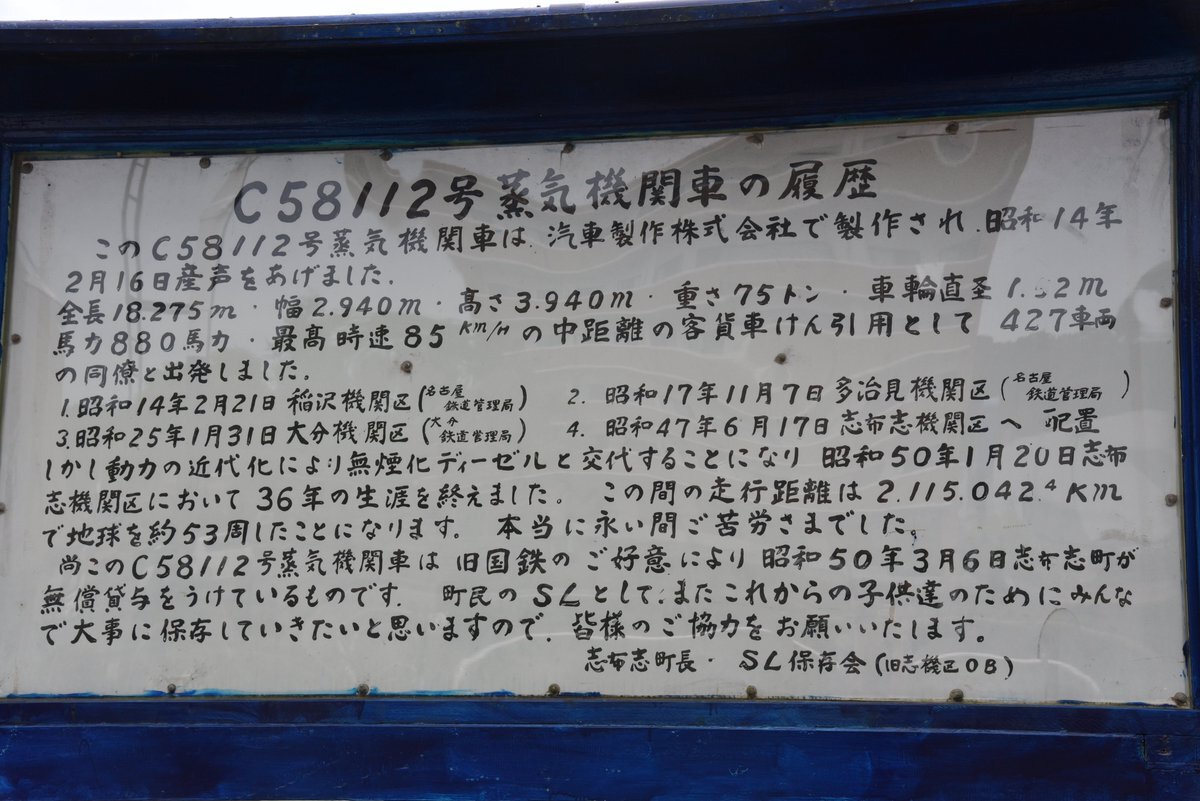 C58112号蒸気機関車の履歴
このC58112号蒸気機関車は、汽車製作株式会社で製作され、昭和14年
2月16日産声をあげました。
全長18.275m・幅2.940m・高さ3.940m・重さ75トン・車輪直圣 1. 2m
馬力880馬力・最高時速85km/Hの中距離の客貨車けん引用として 427車両
の同僚と出発しました。
1.昭和14年2月21日 稲沢機関区(名古屋鉄道管理局) 2. 昭和17年11月7日 多治見機関区(名古屋鉄道管理局)
3.昭和25年1月31日 大分機関区(大分鉄道管理局) 4. 昭和47年6月17日 志布志機関区へ 配置
しかし動力の近代化により無煙化ディーゼルと交代することになり 昭和50年1月20日志布
志機関区において36年の生涯を終えました。 この間の走行距離は2.115.042.4Km
で地球を約53周したことになります。 本当に永い間ご苦労さまでした。
尚このC58112号蒸気機関車は 旧国鉄のご好意により 昭和50年3月6日志布志町が
無償貸与をうけているものです。 町民のSLとして、またこれからの子供達のためにみんな
で大事に保存していきたいと思いますので、皆様のご協力をお願いいたします。
志布志町長・ SL保存会(旧志機区OB)